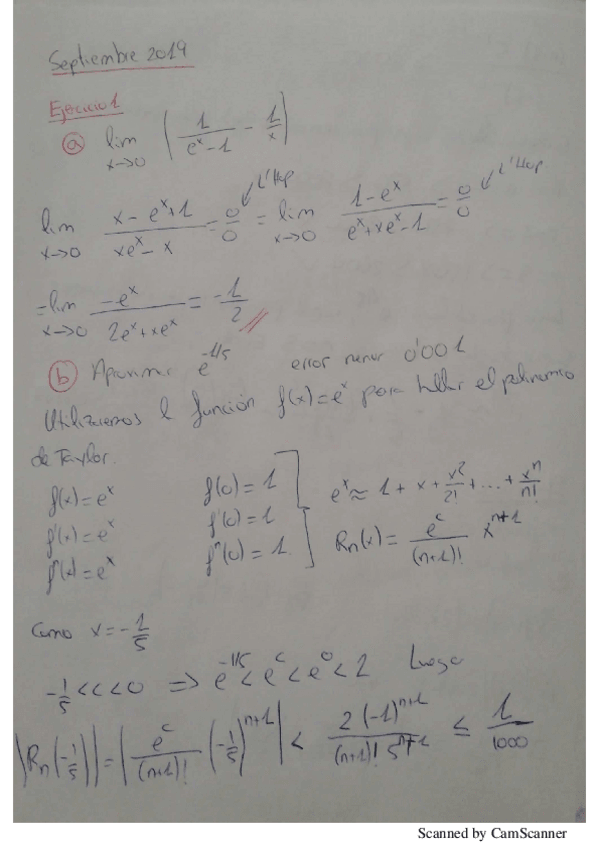 Septiembre 2019
Ejercicio 1
(a) lim x→0 (1/(e^x-1) - 1/x)
↙ L'Hop ↙ L'Hop
lim x→0 (x - e^x + 1)/(xe^x - x) = 0/0 = lim x→0 (1 - e^x)/(e^x + xe^x - 1) = 0/0
= lim x→0 (-e^x)/(2e^x + xe^x) = -1/2 //
(b) Aproximar e^(-1/5) error menor 0'001
Utilizaremos l función f(x) = e^x para hallar el polinomio
de Taylor.
f(x) = e^x f(0) = 1 e^x ≈ 1 + x + x^2/2! + ... + x^n/n!
f'(x) = e^x f'(0) = 1
f''(x) = e^x f''(0) = 1 Rn(x) = e^c/(n+1)! x^(n+1)
Como x = -1/5
-1/5 < c < 0 ⇒ e^(-1/5) < e^c < e^0 < 2 Luego
|Rn(-1/5)| = |e^c/(n+1)! (-1/5)^(n+1)| < 2(-1)^(n+1)/((n+1)! 5^(n+1)) ≤ 1/1000
Scanned by CamScanner